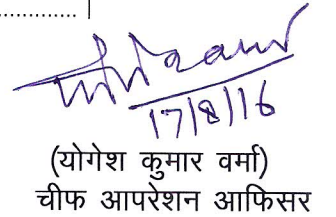 17/8/16
(योगेश कुमार वर्मा)
चीफ आपरेशन आफिसर